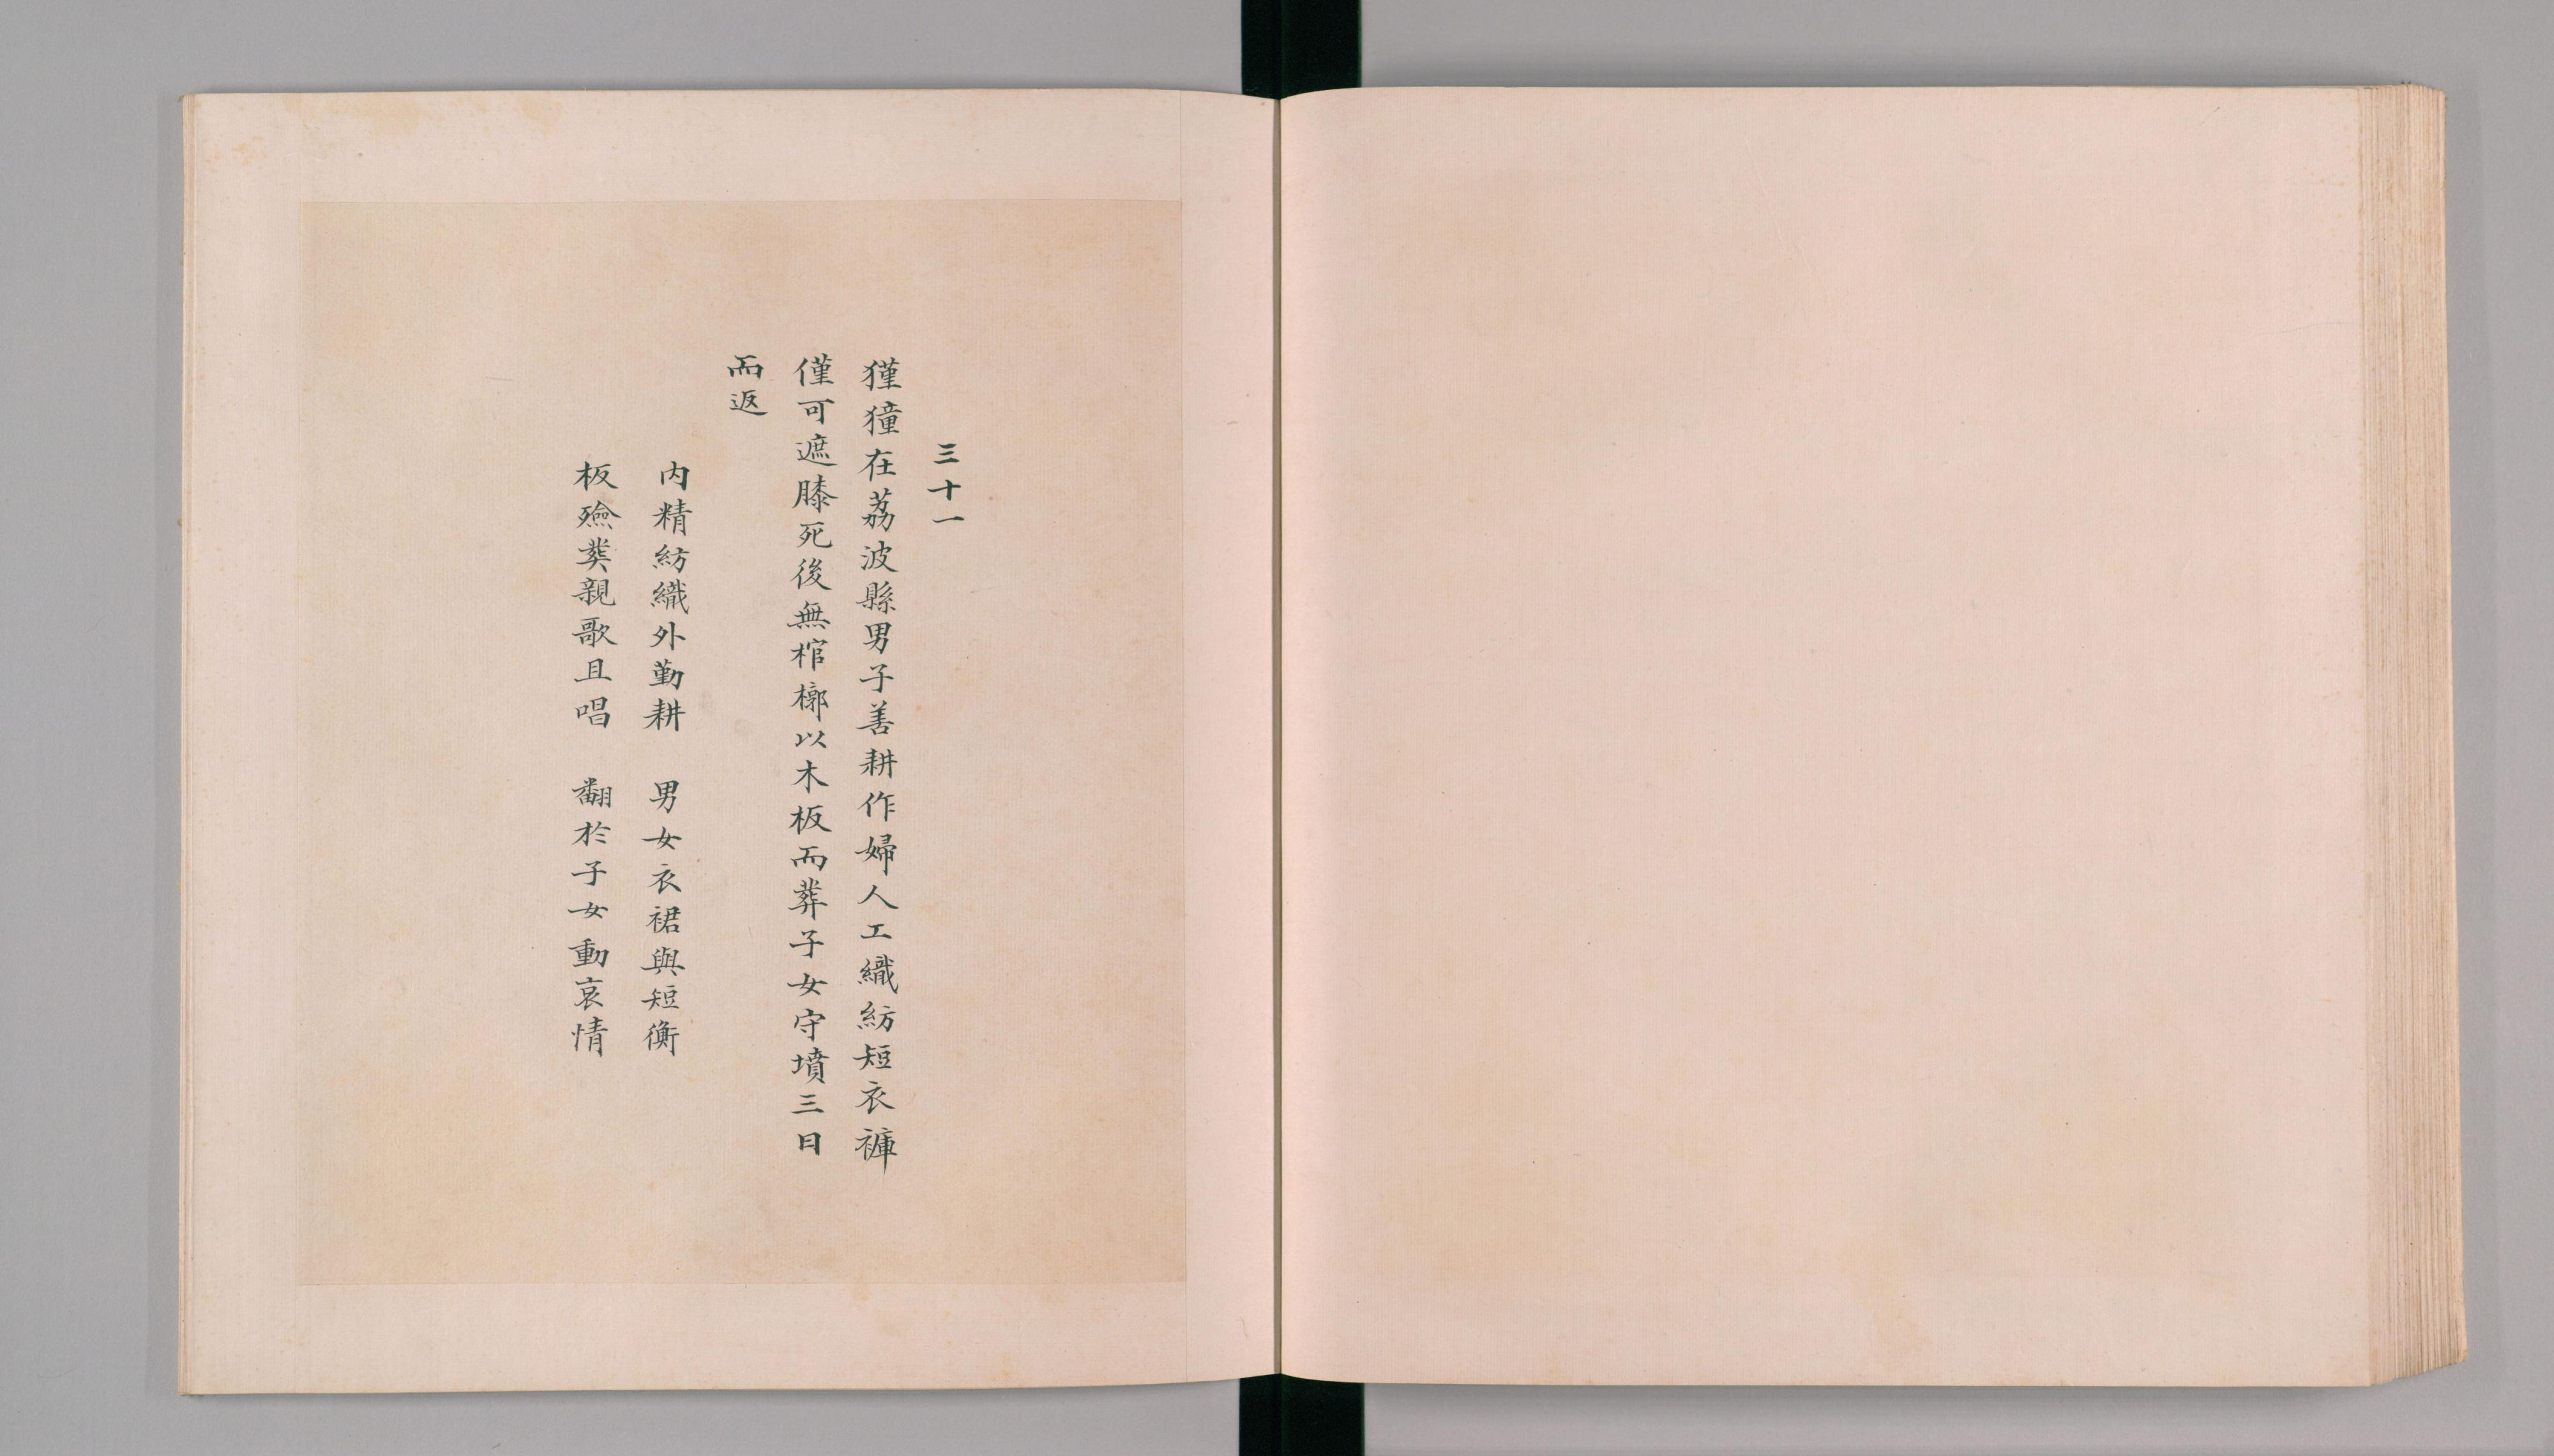 三十一
獞獞在荔波縣男子善耕作婦人工織紡短衣褲
僅可遮膝死後無棺槨以木板而葬子女守墳三日
而返
内精紡織外勤耕　男女衣裙與短衡
板殮葬親歌且唱　翻於子女動哀情